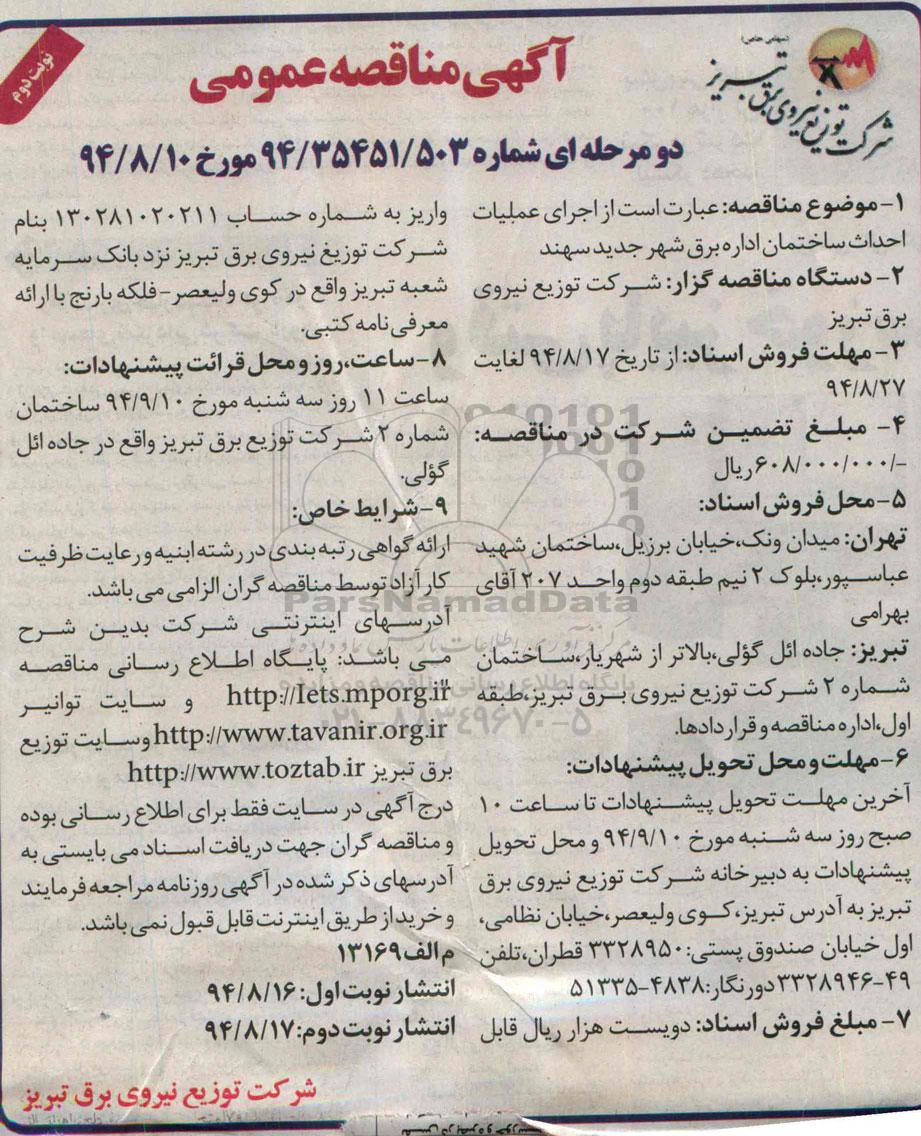 نوبت دوم
(سهامی خاص)
شرکت توزیع نیروی برق تبریز
آگهی مناقصه عمومی
دو مرحله ای شماره ۹۴/۳۵۴۵۱/۵۰۳ مورخ ۹۴/۸/۱۰
۱- موضوع مناقصه: عبارت است از اجرای عملیات
احداث ساختمان اداره برق شهر جدید سهند
۲- دستگاه مناقصه گزار: شرکت توزیع نیروی
برق تبریز
۳- مهلت فروش اسناد: از تاریخ ۹۴/۸/۱۷ لغایت
۹۴/۸/۲۷
۴- مبلغ تضمین شرکت در مناقصه:
۶۰۸/۰۰۰/۰۰۰/- ریال
۵- محل فروش اسناد:
تهران: میدان ونک،خیابان برزیل،ساختمان شهید
عباسپور،بلوک ۲ نیم طبقه دوم واحد ۲۰۷ آقای
بهرامی
تبریز: جاده ائل گؤلی،بالاتر از شهریار،ساختمان
شماره ۲ شرکت توزیع نیروی برق تبریز،طبقه
اول،اداره مناقصه و قراردادها.
۶- مهلت و محل تحویل پیشنهادات:
آخرین مهلت تحویل پیشنهادات تا ساعت ۱۰
صبح روز سه شنبه مورخ ۹۴/۹/۱۰ و محل تحویل
پیشنهادات به دبیرخانه شرکت توزیع نیروی برق
تبریز به آدرس تبریز،کوی ولیعصر،خیابان نظامی،
اول خیابان صندوق پستی:۳۳۲۸۹۵۰ قطران،تلفن
۳۳۲۸۹۴۶-۴۹ دورنگار:۴۸۳۸-۵۱۳۳۵
۷- مبلغ فروش اسناد: دویست هزار ریال قابل
واریز به شماره حساب ۱۳۰۲۸۱۰۲۰۲۱۱ بنام
شرکت توزیغ نیروی برق تبریز نزد بانک سرمایه
شعبه تبریز واقع در کوی ولیعصر-فلکه بارنج با ارائه
معرفی نامه کتبی.
۸- ساعت،روز و محل قرائت پیشنهادات:
ساعت ۱۱ روز سه شنبه مورخ ۹۴/۹/۱۰ ساختمان
شماره ۲ شرکت توزیع برق تبریز واقع در جاده ائل
گؤلی.
۹- شرایط خاص:
ارائه گواهی رتبه بندی در رشته ابنیه و رعایت ظرفیت
کار آزاد توسط مناقصه گران الزامی می باشد.
آدرسهای اینترنتی شرکت بدین شرح
می باشد: پایگاه اطلاع رسانی مناقصه
http://Iets.mporg.ir و سایت توانیر
http://www.tavanir.org.ir وسایت توزیع
برق تبریز http://www.toztab.ir
درج آگهی در سایت فقط برای اطلاع رسانی بوده
و مناقصه گران جهت دریافت اسناد می بایستی به
آدرسهای ذکر شده در آگهی روزنامه مراجعه فرمایند
و خرید از طریق اینترنت قابل قبول نمی باشد.
م الف ۱۳۱۶۹
انتشار نوبت اول: ۹۴/۸/۱۶
انتشار نوبت دوم: ۹۴/۸/۱۷
شرکت توزیع نیروی برق تبریز
ParsNamadData
پایگاه اطلاع رسانی مناقصه و مزایده
۰۲۱-۸۸۳۴۹۶۷۰-۵